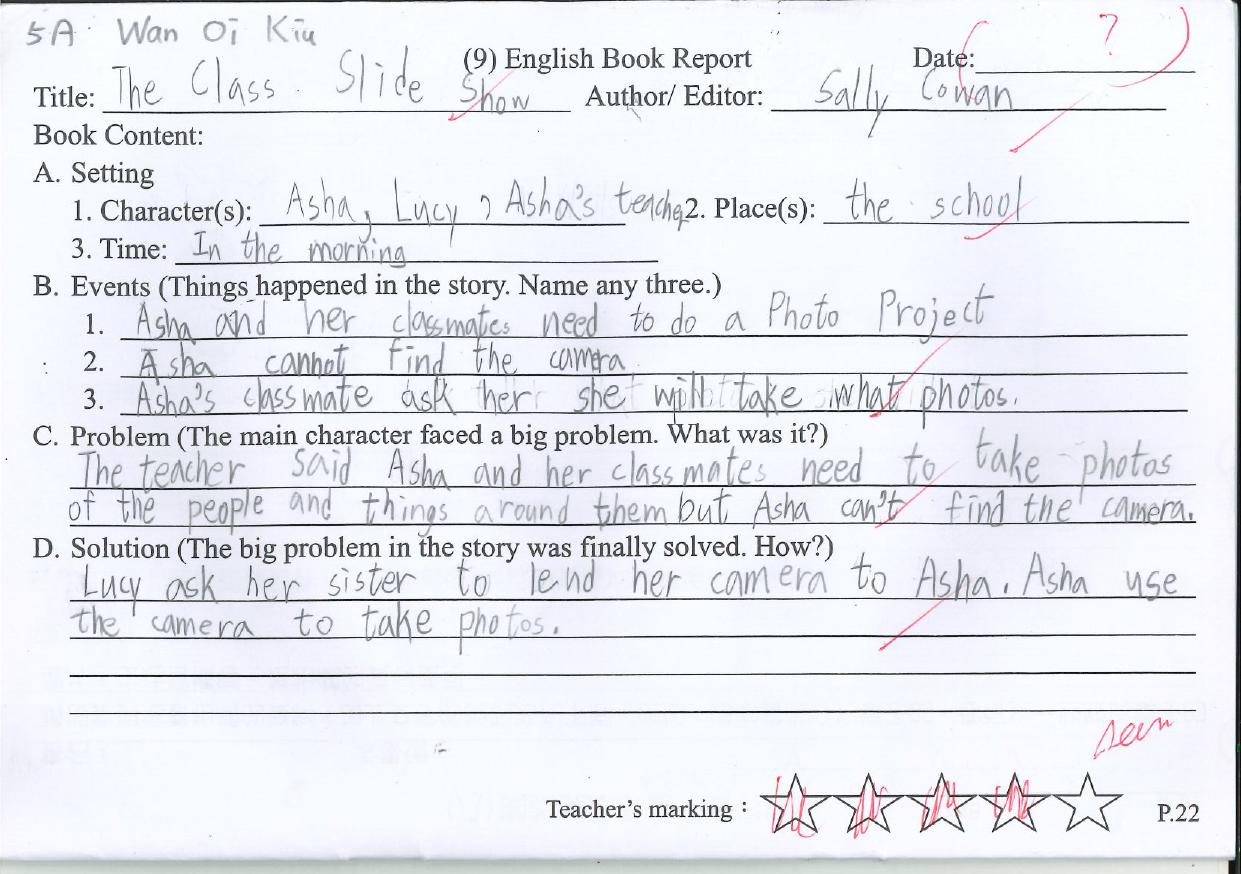 5A Wan Oi Kiu
(9) English Book Report
Date: ?
Title: The Class Slide Show Author/ Editor: Sally Cowan
Book Content:
A. Setting
1. Character(s): Asha, Lucy, Asha's teacher 2. Place(s): the school
3. Time: In the morning
B. Events (Things happened in the story. Name any three.)
1. Asha and her classmates need to do a Photo Project
2. Asha cannot find the camera
3. Asha's classmate ask her she will take what photos.
C. Problem (The main character faced a big problem. What was it?)
The teacher said Asha and her classmates need to take photos
of the people and things around them but Asha can't find the camera.
D. Solution (The big problem in the story was finally solved. How?)
Lucy ask her sister to lend her camera to Asha. Asha use
the camera to take photos.
seen
Teacher's marking :
P.22